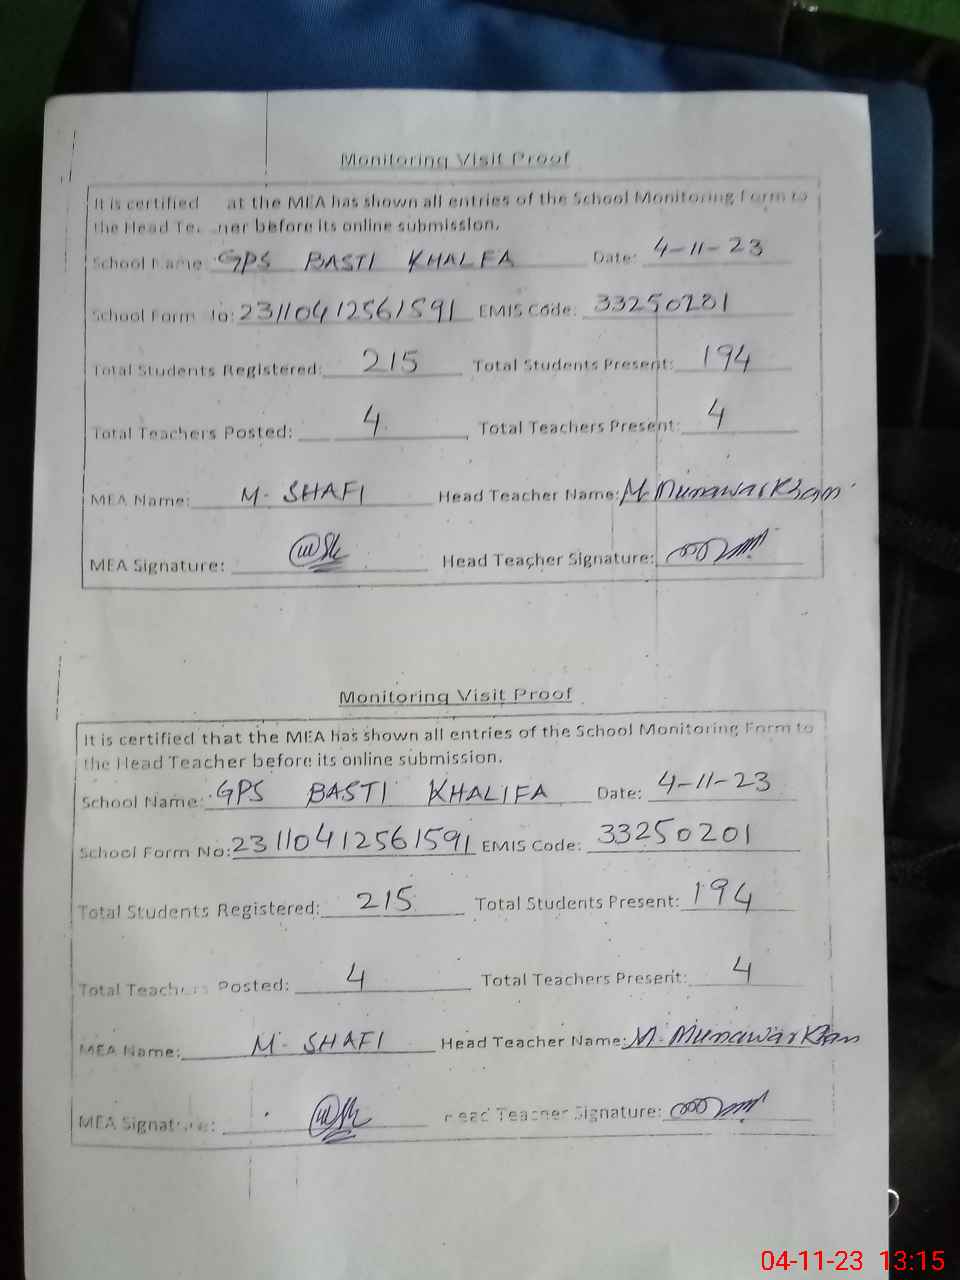 Monitoring Visit Proof
It is certified at the MEA has shown all entries of the School Monitoring Form to
the Head Te. .ner before its online submission.
School Name GPS BASTI KHALFA Date: 4-11-23
School Form No: 23110412561591 EMIS Code: 33250201
Total Students Registered: 215 Total Students Present: 194
Total Teachers Posted: 4 Total Teachers Present: 4
MEA Name: M. SHAFI Head Teacher Name: M. Munawar Khan
MEA Signature: Head Teacher Signature:
Monitoring Visit Proof
It is certified that the MEA has shown all entries of the School Monitoring Form to
the Head Teacher before its online submission.
School Name: GPS BASTI KHALIFA Date: 4-11-23
School Form No: 23110412561591 EMIS Code: 33250201
Total Students Registered: 215 Total Students Present: 194
Total Teachers Posted: 4 Total Teachers Present: 4
MEA Name: M. SHAFI Head Teacher Name: M. Munawar Khan
MEA Signature: Head Teacher Signature:
04-11-23 13:15